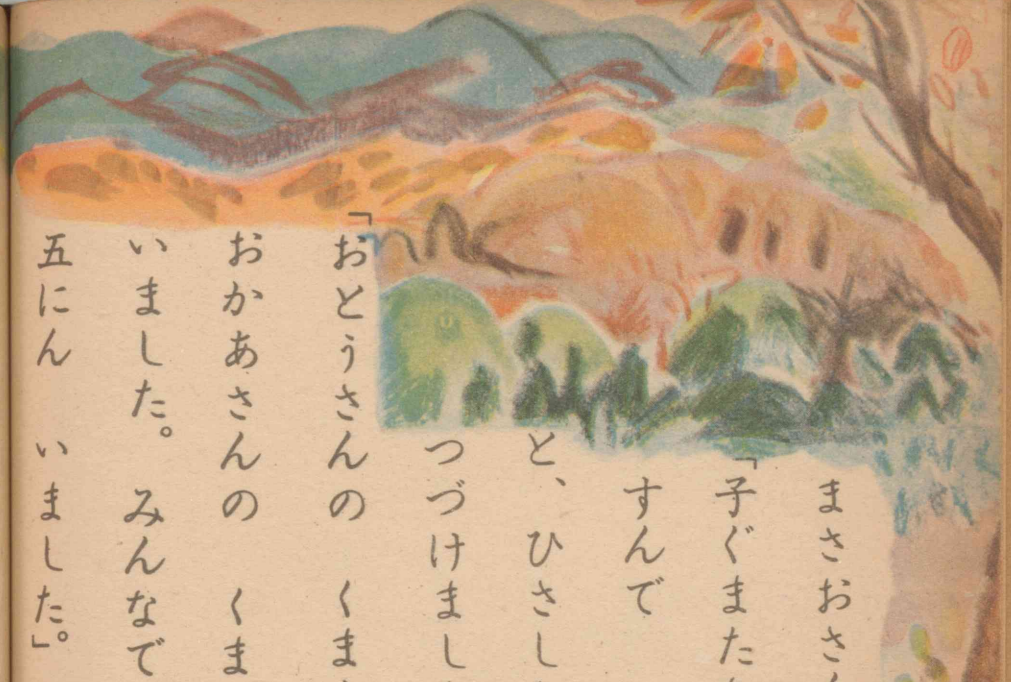 まさおさ
「子ぐまた
すんで
と、ひさし
つづけまし
「おとうさんの　くま
おかあさんの　くま
いました。　みんなで
五にん　いました」。